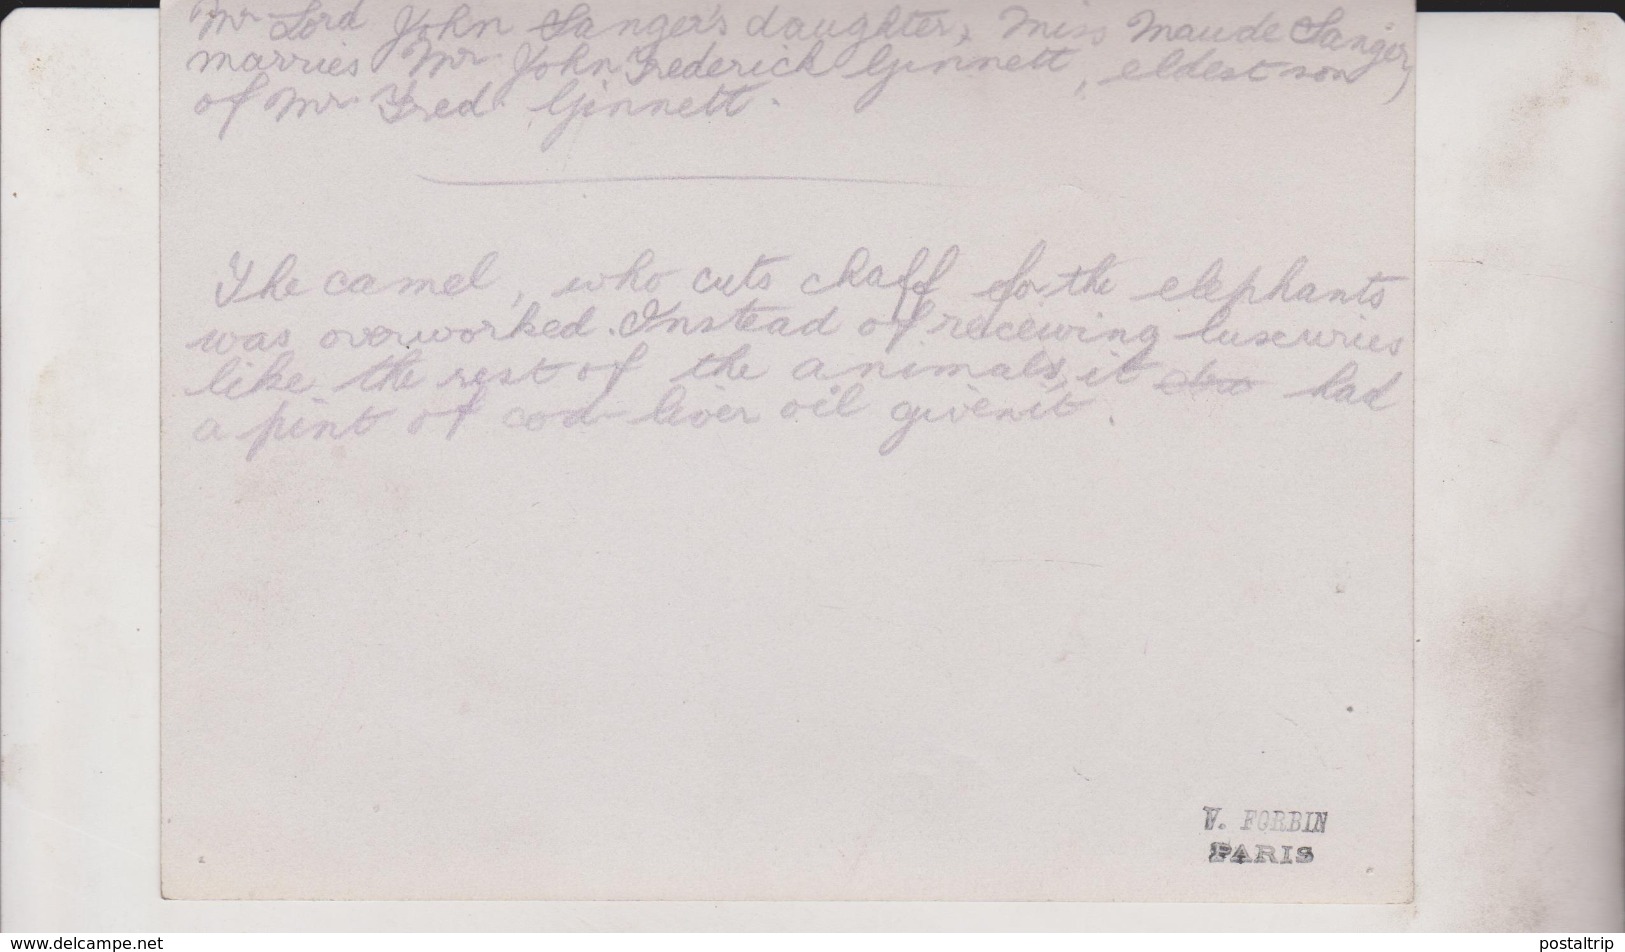 Mr Lord John Sanger's daughter, Miss Maude Sanger,
marries Mr. John Frederick Ginnett, eldest son
of Mr Fred Ginnett.
The camel, who cuts chaff for the elephants
was overworked. Instead of receiving luxuries
like the rest of the animals, it had
a pint of cod liver oil givenit.
V. FORBIN
PARIS
www.delcampe.net
postaltrip